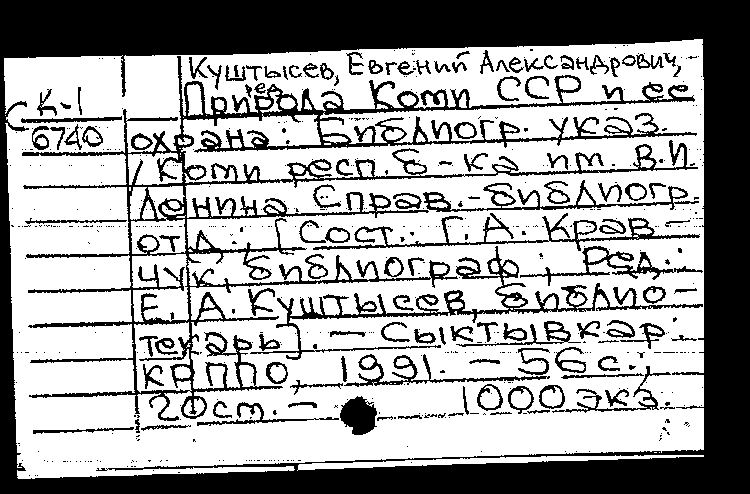 Куштысев, Евгений Александрович,-
ред.
К-1 Природа Коми ССР и ее
6740 охрана: Библиогр. указ.
/ Коми респ. б-ка им. В.И.
Ленина. Справ.-библиогр.
отд.; [Сост.: Г.А. Крав-
чук, библиограф; Ред.:
Е. А. Куштысев, библио-
текарь]. - Сыктывкар:
КРППО, 1991. - 56 с.;
20 см. - 1000 экз.